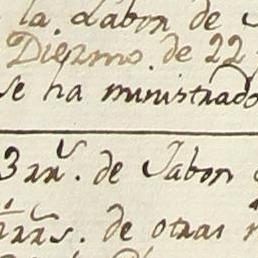 la Labon de
Diezmo de 22
se ha ministrado
3 rr.s de Jabon
rr.s de otras